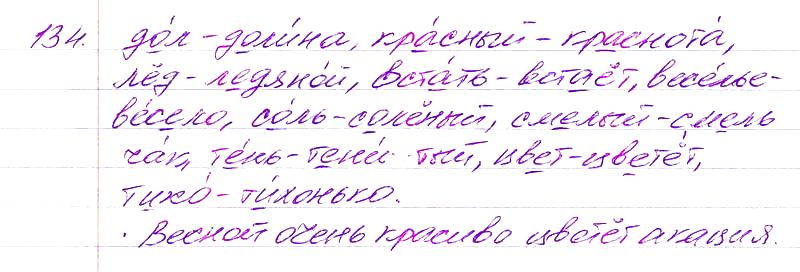 134. до́л - доли́на, кра́сный - краснота́,
лёд - ледяно́й, вста́ть - встаёт, весе́лье -
ве́село, со́ль - солёный, смелый - смель
ча́к, те́нь - тени́ тый, цвет - цветёт,
тихо́ - ти́хонько.
. Весной очень красиво цветёт акация.